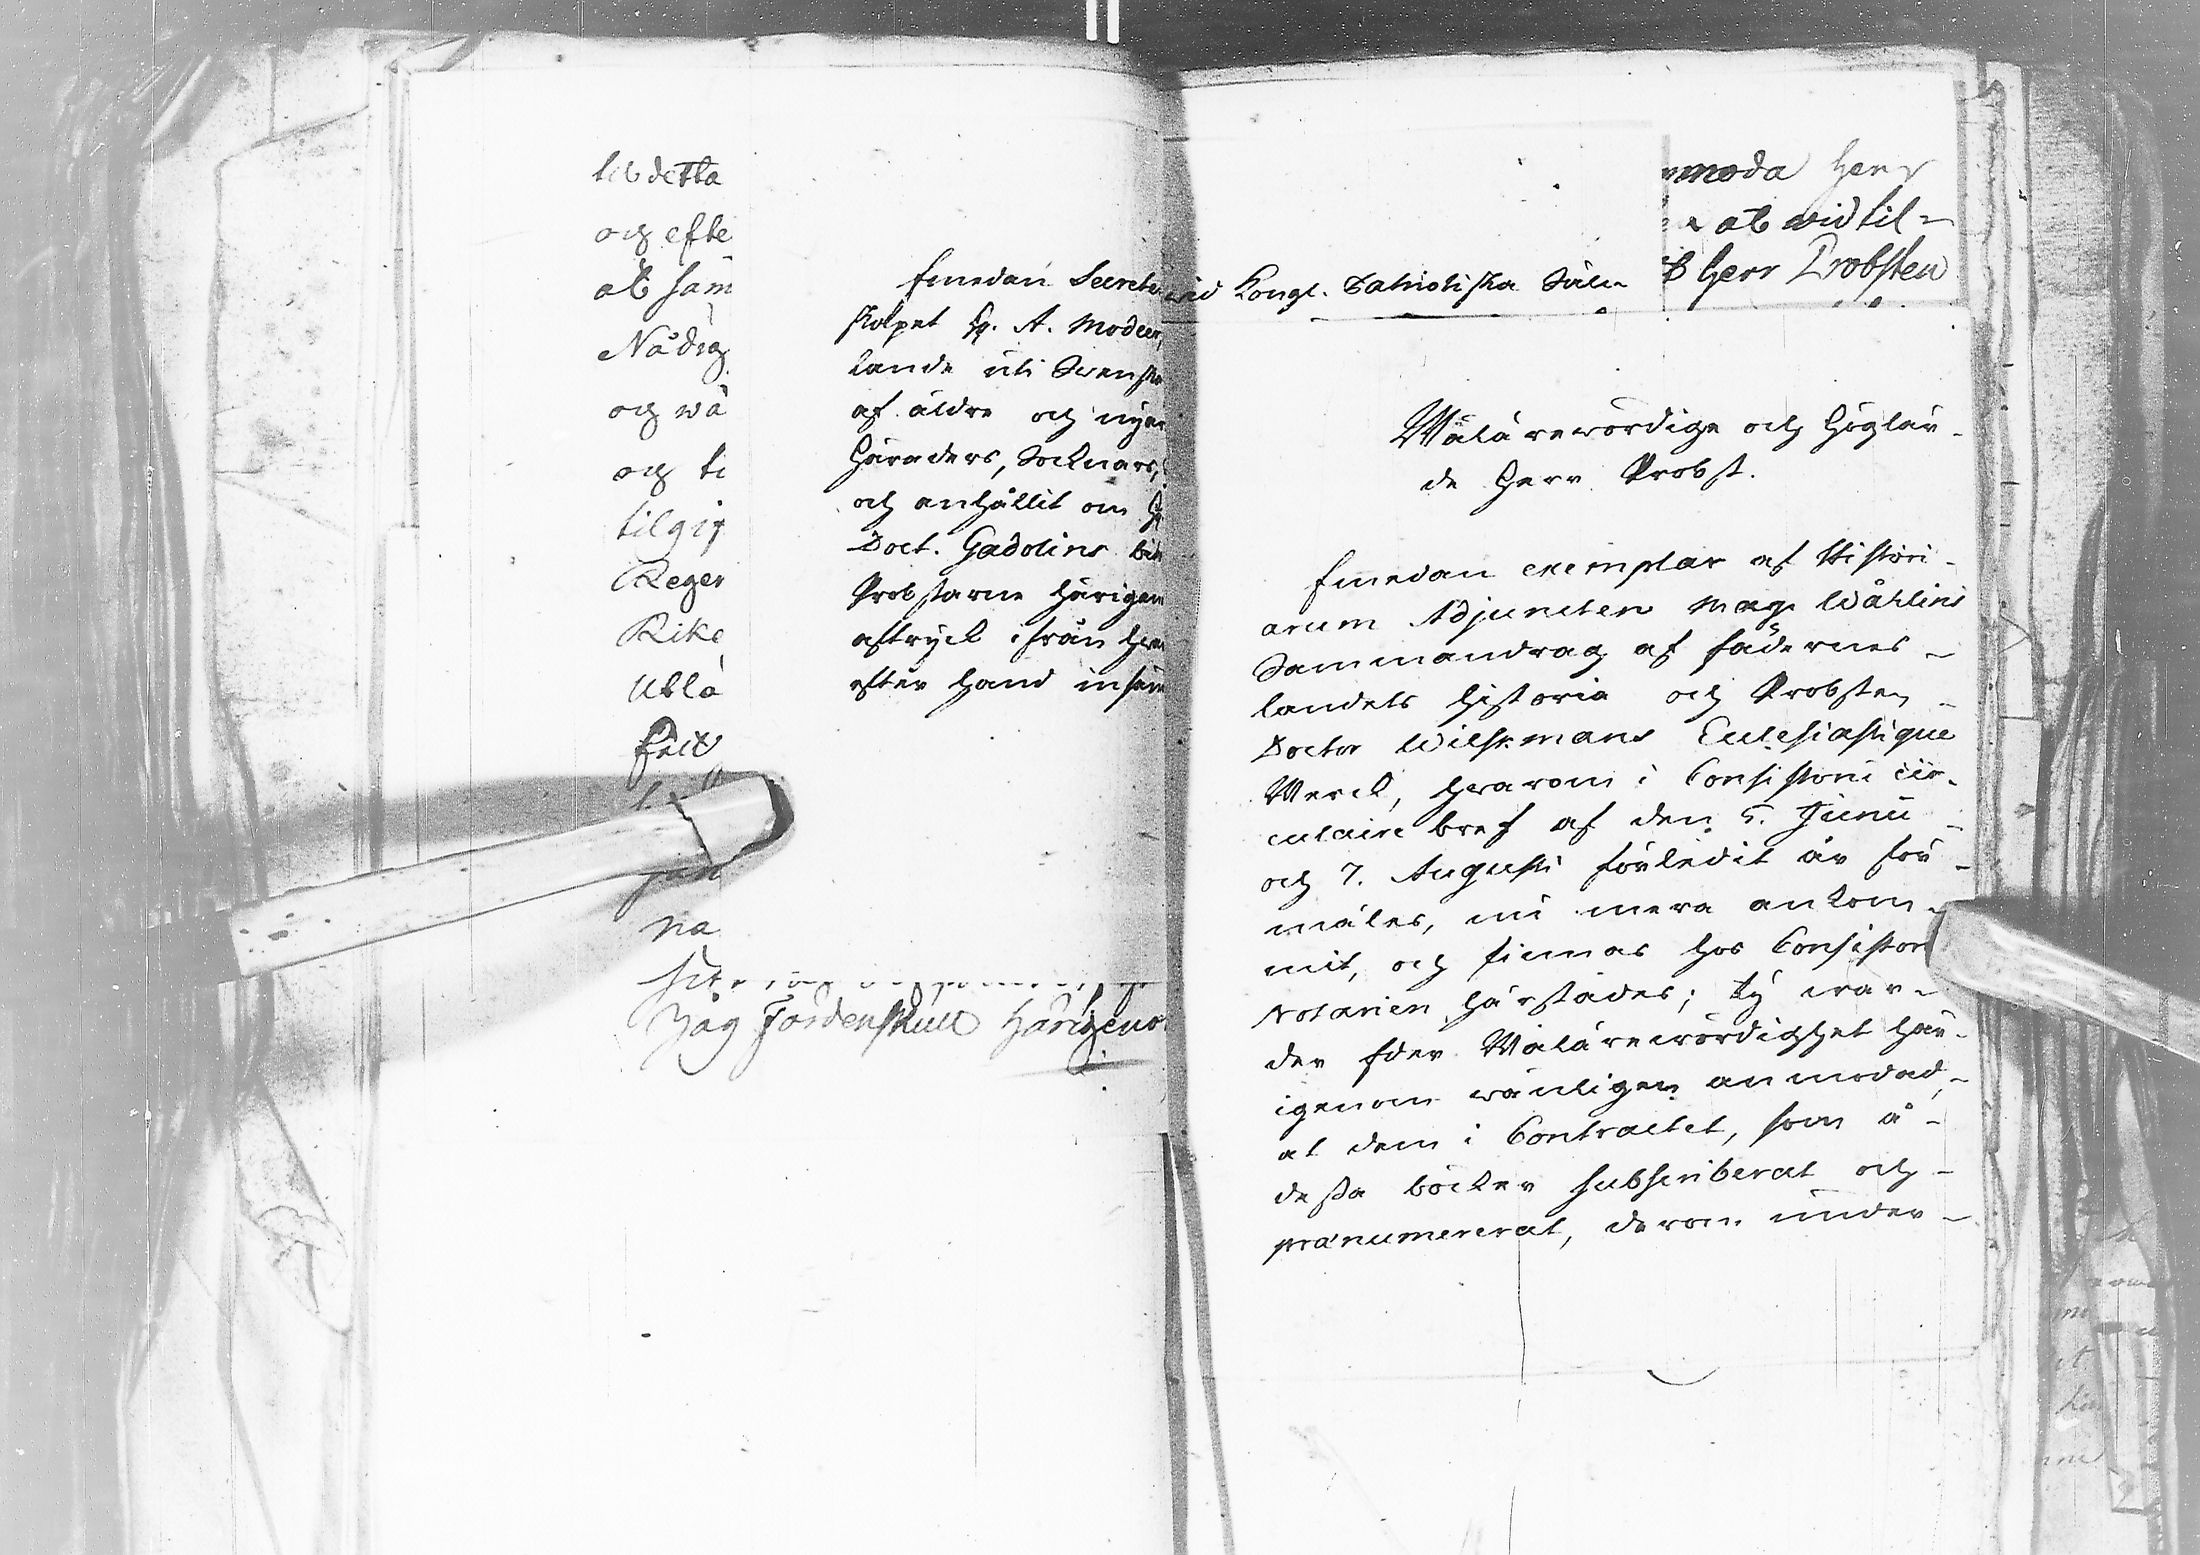 til detta
och efte
at sam
Nådig
och wä
och ti
tilgif
Reger
Rike
Utla
na
Jag Jordenskull härigenom
Emedan Secrete
wid Kongl. Patriotiska Säll-
skapet Hr. A. Modeer,
lande uti Svenska
af äldre och nyar
Häraders, Socknars,
och anhållit om H
Doct. Gadolins bi
Probstarne härigen
aftryck ifrån hwa
efter hand insän
moda Herr
at wid til-
Herr Probsten
Wälärewördige och Höglär-
de Herr Probst.
Emedan exemplar af Histori-
arum Adjuncten Mag. Wåhlins
Sammandrag af fädernes-
landets Historia och Probsten
Doctor Wilskmans Ecclesiastique
Werck, hwarom i Consistorii cir-
culaire bref af den 5. Junii
och 7. Augusti förledit år för-
mäles, nu mera ankom-
mit, och finnas hos Consistorii
Notarien härstädes; ty war-
der Eder Wälärewördighet här-
igenom wänligen anmodad,
at dem i Contractet, som å
dessa böcker subscriberat och
prænumererat, derom under-